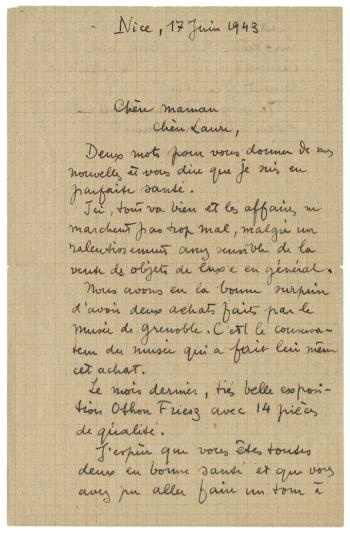 Nice, 17 Juin 1943
Chère maman
Chère Laure,
Deux mots pour vous donner de mes
nouvelles et vous dire que je suis en
parfaite santé.
Ici, tout va bien et les affaires ne
marchent pas trop mal, malgré un
ralentissement assez sensible de la
vente des objets de luxe en général.
Nous avons eu la bonne surprise
d'avoir deux achats faits par le
musée de Grenoble. C'est le conserva-
teur du musée qui a fait lui même
cet achat.
Le mois dernier, très belle exposi-
tion Othon Friesz avec 14 pièces
de qualité.
J'espère que vous êtes toutes
deux en bonne santé et que vous
avez pu aller faire un tour à